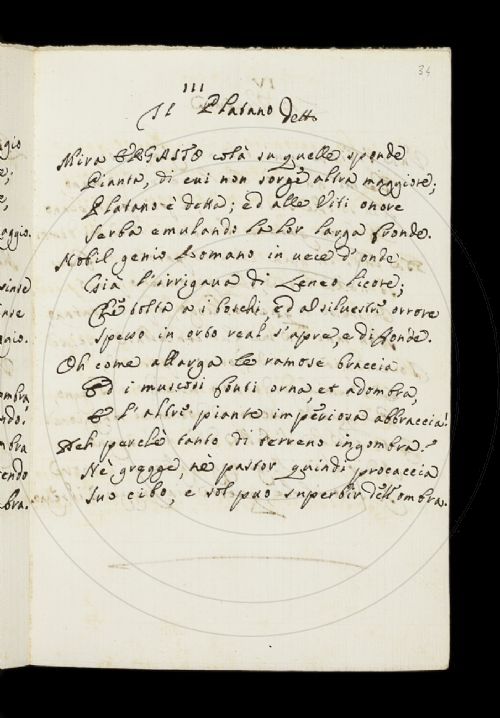 34
III
Il Platano detto
Mira ERGASTO colà su quelle sponde
Pianta, di cui non sorge altra maggiore;
Platano è detta; ed alle Viti onore
Serba emulando la lor larga fronde.
Nobil genio Romano in vece d'onde
Già l'irrigava di Leneo licore;
Chè tolta a i boschi, ed al silvestre orrore
spesso in orto real s'apre, e diffonde.
Oh come allarga le ramose braccia
Ed i muscosi fonti orna, et adombra,
E l'altre piante imperiosa abbraccia!
Deh perchè tanto di terreno ingombra?
Nè gregge, nè pastor quindi procaccia
Suo cibo, e sol può superbir dell'ombra.